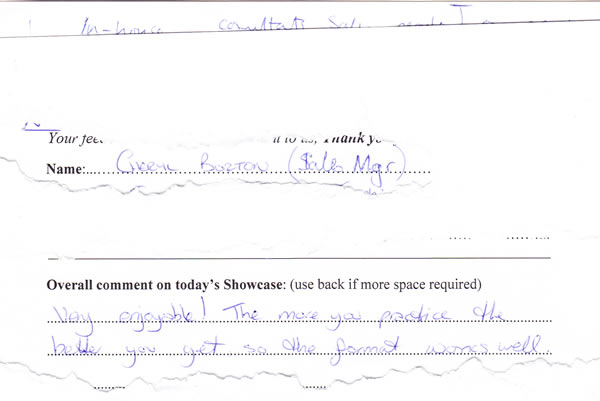 In-house consultants Sales
Your feed to us, Thank you
Name: Cheryl Burton (Sales Mgr)
Overall comment on today's Showcase: (use back if more space required)
Very enjoyable! The more you practice the
better you get so the format works well.